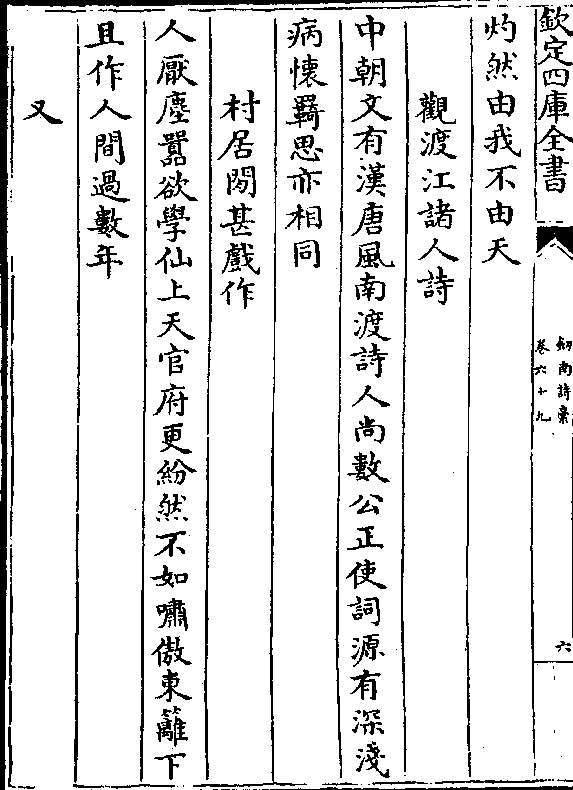 欽定四庫全書
劒南詩稾
卷六十九
六
灼然由我不由天
觀渡江諸人詩
中朝文有漢唐風南渡詩人尚數公正使詞源有深淺
病懷羇思亦相同
村居閑甚戲作
人厭塵囂欲學仙上天官府更紛然不如嘯傲東籬下
且作人間過數年
又